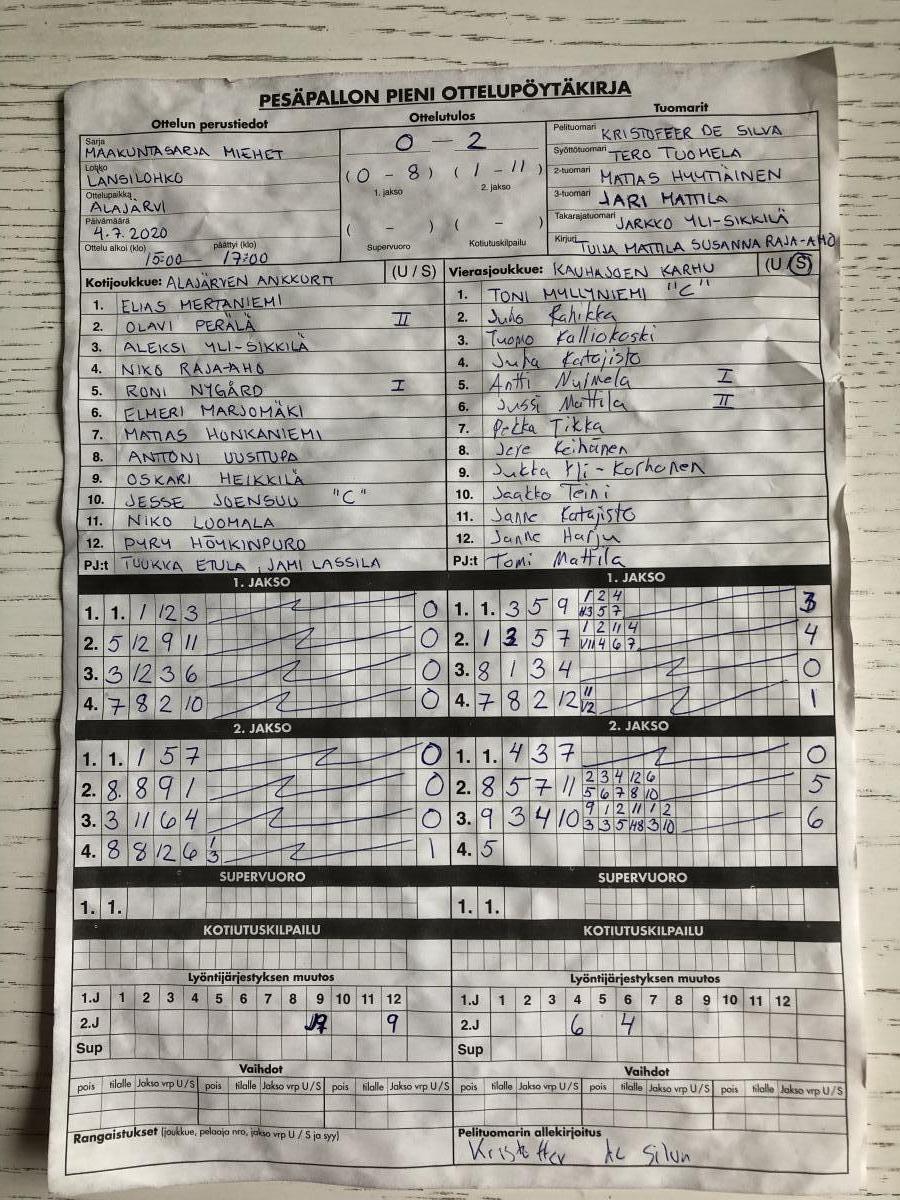 PESÄPALLON PIENI OTTELUPÖYTÄKIRJA
Ottelun perustiedot
Sarja
MAAKUNTASARJA MIEHET
Lohko
LÄNSILOHKO
Ottelupaikka
ALAJÄRVI
Päivämäärä
4.7.2020
Ottelu alkoi (klo) päättyi (klo)
15:00 17:00
Ottelutulos
0 - 2
(0 - 8) (1 - 11)
1. jakso 2. jakso
( - ) ( - )
Supervuoro Kotiutuskilpailu
Tuomarit
Pelituomari KRISTOFFER DE SILVA
Syöttötuomari TERO TUOMELA
2-tuomari MATIAS HYYTIÄINEN
3-tuomari JARI MATTILA
Takarajatuomari JARKKO YLI-SIKKILÄ
Kirjuri TUIJA MATTILA SUSANNA RAJA-AHO
Kotijoukkue: ALAJÄRVEN ANKKURIT (U / S)
1. ELIAS MERTANIEMI
2. OLAVI PERÄLÄ II
3. ALEKSI YLI-SIKKILÄ
4. NIKO RAJA-AHO
5. RONI NYGÅRD I
6. ELMERI MARJOMÄKI
7. MATIAS HONKANIEMI
8. ANTTONI UUSITUPA
9. OSKARI HEIKKILÄ
10. JESSE JOENSUU "C"
11. NIKO LUOMALA
12. PYRY HÖYKINPURO
PJ:t TUUKKA ETULA, JAMI LASSILA
Vierasjoukkue: KAUHAJOEN KARHU (U / S)
1. TONI MYLLYNIEMI "C"
2. Juho Kahikka
3. Tuomo Kalliokoski
4. Juha Katajisto
5. Antti Nulmela I
6. Jussi Mattila II
7. Pekka Tikka
8. Jere Keihänen
9. Jukka Yli-Korhonen
10. Jaakko Teini
11. Janne Katajisto
12. Janne Harju
PJ:t Tomi Mattila
1. JAKSO
1. 1. 1 12 3 0
2. 5 12 9 11 0
3. 3 12 3 6 0
4. 7 8 2 10 0
1. JAKSO
1. 1. 3 5 9 1 2 4 3
3 5 7
2. 1 3 5 7 1 2 11 4 4
4 6 7
3. 8 1 3 4 0
4. 7 8 2 12 11 1
12
2. JAKSO
1. 1. 1 5 7 0
2. 8. 8 9 1 0
3. 3 11 6 4 0
4. 8 8 12 6 1 1
3
2. JAKSO
1. 1. 4 3 7 0
2. 8 5 7 11 2 3 4 12 6 5
5 6 7 8 10
3. 9 3 4 10 9 1 2 11 1 2 6
3 3 5 3 10
4. 5
SUPERVUORO
1. 1.
SUPERVUORO
1. 1.
KOTIUTUSKILPAILU
KOTIUTUSKILPAILU
Lyöntijärjestyksen muutos
1.J 1 2 3 4 5 6 7 8 9 10 11 12
2.J 9
Sup
Lyöntijärjestyksen muutos
1.J 1 2 3 4 5 6 7 8 9 10 11 12
2.J 6 4
Sup
Vaihdot
pois tilalle Jakso vrp U/S pois tilalle Jakso vrp U/S pois tilalle Jakso vrp U/S
Vaihdot
pois tilalle Jakso vrp U/S pois tilalle Jakso vrp U/S pois tilalle Jakso vrp U/S
Rangaistukset (joukkue, pelaaja nro, jakso vrp U / S ja syy)
Pelituomarin allekirjoitus
Kristoffer de Silva